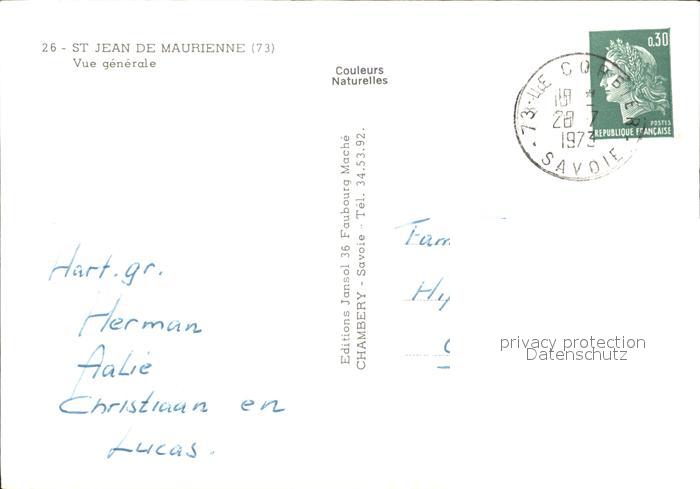 26 - ST JEAN DE MAURIENNE (73)
Vue générale
Couleurs
Naturelles
0,30
POSTES
REPUBLIQUE FRANÇAISE
73 - LE CORBIER
28 - 7
1973
SAVOIE
Editions Jansol 36 Faubourg Maché
CHAMBERY - Savoie - Tél. 34.53.92.
Hart. gr.
Herman
Aalie
Christiaan en
Lucas.
Fam
Hy
privacy protection
Datenschutz